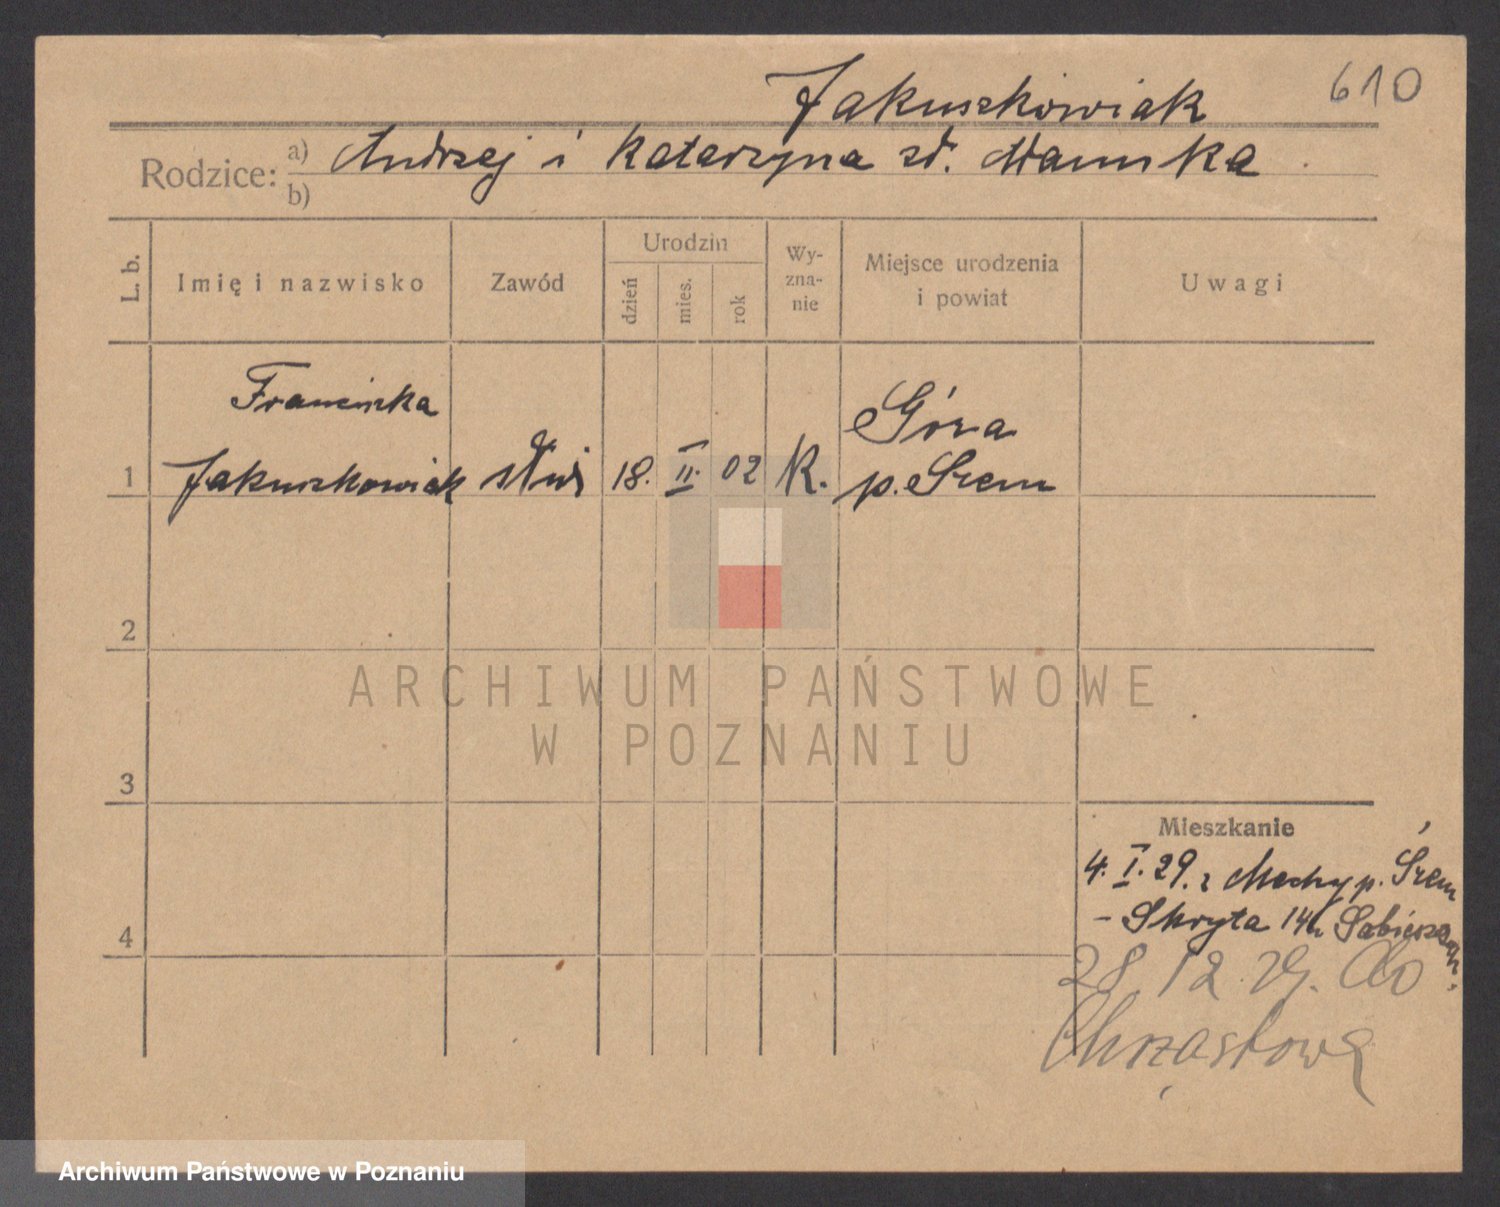 Jakuszkowiak 610
Rodzice: a) Andrzej i Katarzyna zd.
b)
L. b.
Imię i nazwisko
Zawód
Urodzin
dzień
mies.
rok
Wy-
zna-
nie
Miejsce urodzenia
i powiat
Uwagi
Franciszka
1 Jakuszkowiak służ 18. II. 02 K. Góra
p. Śrem
2
3
4
ARCHIWUM PAŃSTWOWE
W POZNANIU
Mieszkanie
4. I. 29. z Mechy p. Śrem
- Skryta 14
28 12 29. do
Chrząstowa
Archiwum Państwowe w Poznaniu